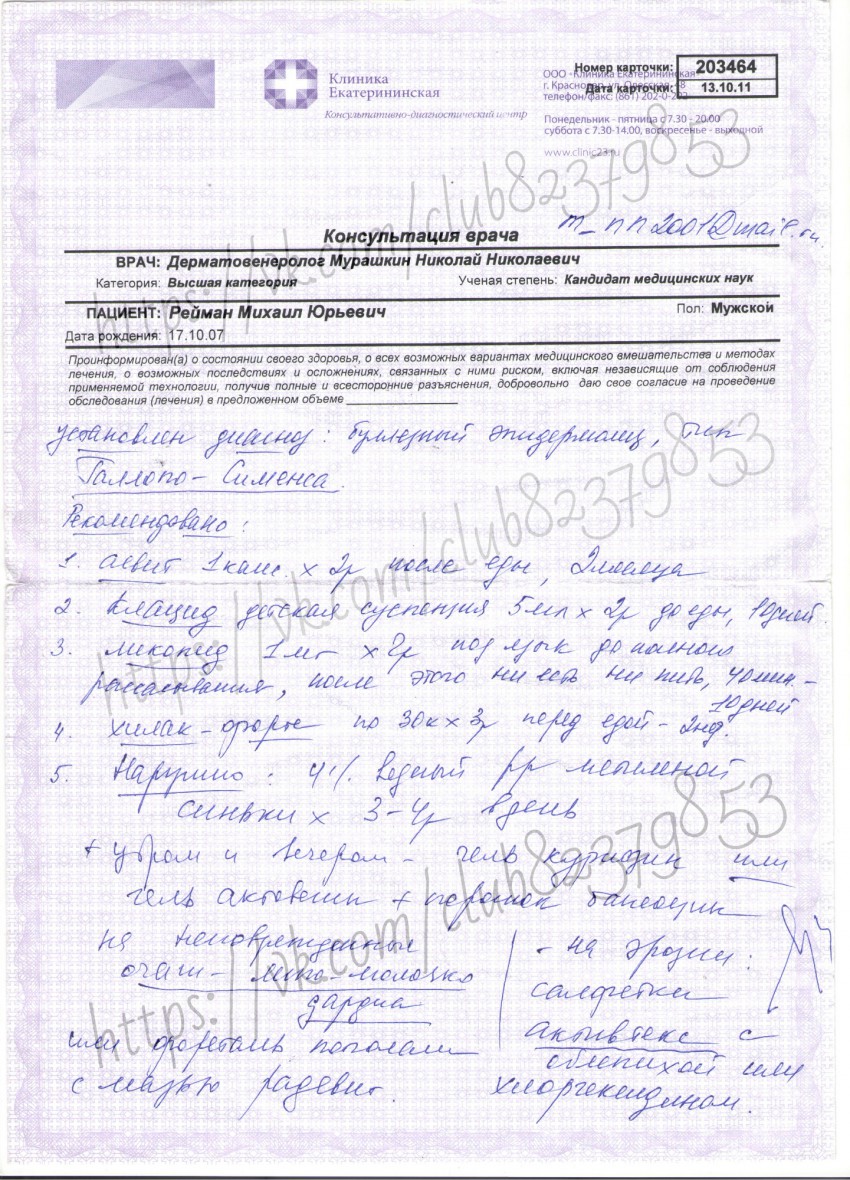 Клиника
Екатерининская
Консультативно-диагностический центр
ООО «Клиника Екатерининская»
г. Краснодар, ул. Одесская 48
телефон/факс: (861) 202-0-202
Понедельник - пятница с 7.30 - 20.00
суббота с 7.30-14.00, воскресенье - выходной
www.clinic23.ru
Номер карточки: 203464
Дата карточки: 13.10.11
m_nn2001@mail.ru.
Консультация врача
ВРАЧ: Дерматовенеролог Мурашкин Николай Николаевич
Категория: Высшая категория Ученая степень: Кандидат медицинских наук
ПАЦИЕНТ: Рейман Михаил Юрьевич Пол: Мужской
Дата рождения: 17.10.07
Проинформирован(а) о состоянии своего здоровья, о всех возможных вариантах медицинского вмешательства и методах
лечения, о возможных последствиях и осложнениях, связанных с ними риском, включая независящие от соблюдения
применяемой технологии, получив полные и всесторонние разъяснения, добровольно даю свое согласие на проведение
обследования (лечения) в предложенном объеме
установлен диагноз: буллезный эпидермолиз, тип
Галлопо-Сименса.
Рекомендовано:
1. аевит 1 капс. х 2р после еды, 2 месяца
2. Клацид детская суспензия 5мл х 2р до еды, 10дней.
3. ликопид 1мг х 2р под язык до полного
рассасывания, после этого ни есть ни пить, 40мин. -
10дней
4. хилак-форте по 30к х 3р перед едой - 2нд.
5. Наружно: 1% водный рр метиленой
синьки х 3-4р вдень
+ утром и вечером - гель куриозин или
гель актовегин + порошок банеоцин
на неповрежденные
очаги - липо-молочко
дардиа
или форетталь пополам
с мазью радевит.
- на эрозии:
салфетки
активтекс с
облепихой или
хлоргексидином.
https://vk.com/club82379853
https://vk.com/club82379853
https://vk.com/club82379853